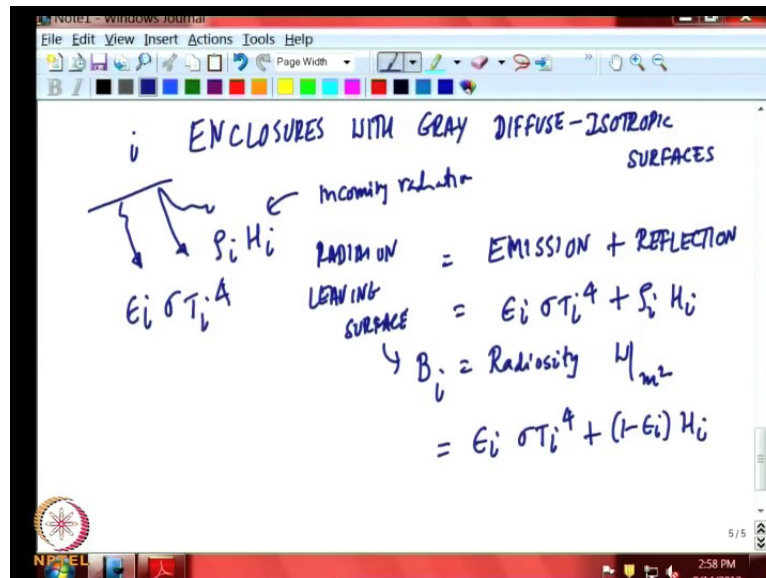 Note1 - Windows Journal
File Edit View Insert Actions Tools Help
Page Width
B I
i ENCLOSURES WITH GRAY DIFFUSE-ISOTROPIC
SURFACES
incoming radiation
ρi Hi
εi σTi^4
RADIATION LEAVING SURFACE = EMISSION + REFLECTION
= εi σTi^4 + ρi Hi
Bi = Radiosity W/m2
= εi σTi^4 + (1-εi) Hi
5/5
NPTEL
2:58 PM